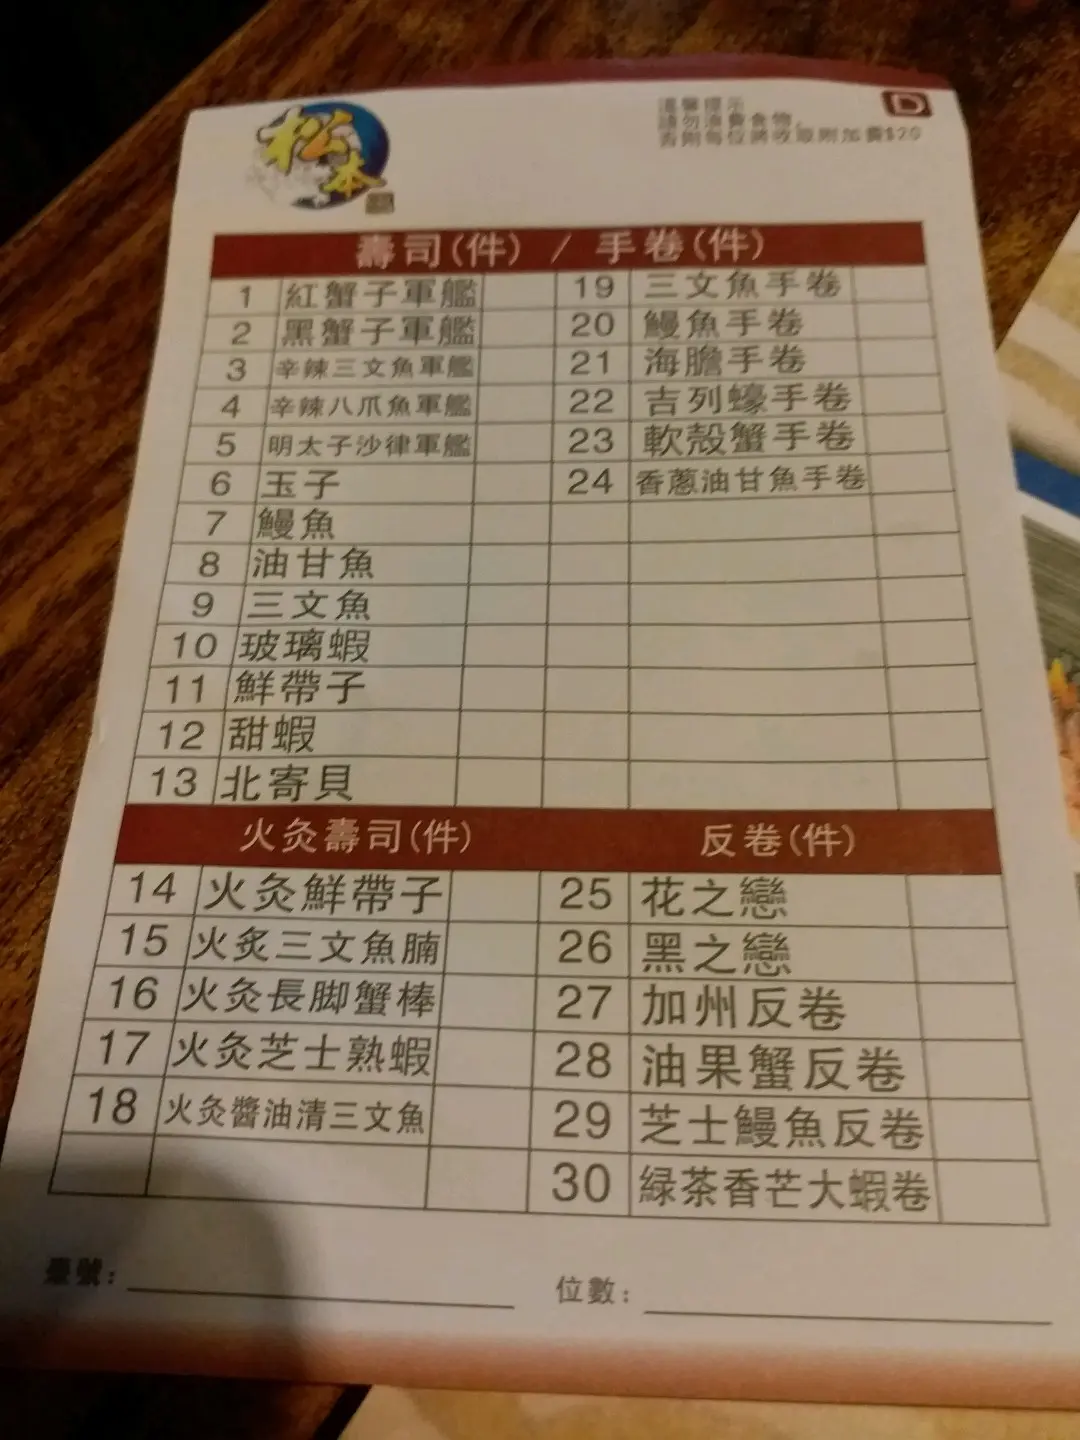 松本
溫馨提示
請勿浪費食物,
否則每位將收取附加費$20
D
壽司(件) / 手卷(件)
1 紅蟹子軍艦 19 三文魚手卷
2 黑蟹子軍艦 20 鰻魚手卷
3 辛辣三文魚軍艦 21 海膽手卷
4 辛辣八爪魚軍艦 22 吉列蠔手卷
5 明太子沙律軍艦 23 軟殼蟹手卷
6 玉子 24 香蔥油甘魚手卷
7 鰻魚
8 油甘魚
9 三文魚
10 玻璃蝦
11 鮮帶子
12 甜蝦
13 北寄貝
火灸壽司(件) 反卷(件)
14 火灸鮮帶子 25 花之戀
15 火炙三文魚腩 26 黑之戀
16 火灸長脚蟹棒 27 加州反卷
17 火灸芝士熟蝦 28 油果蟹反卷
18 火灸醬油清三文魚 29 芝士鰻魚反卷
30 緑茶香芒大蝦卷
號: 位數: